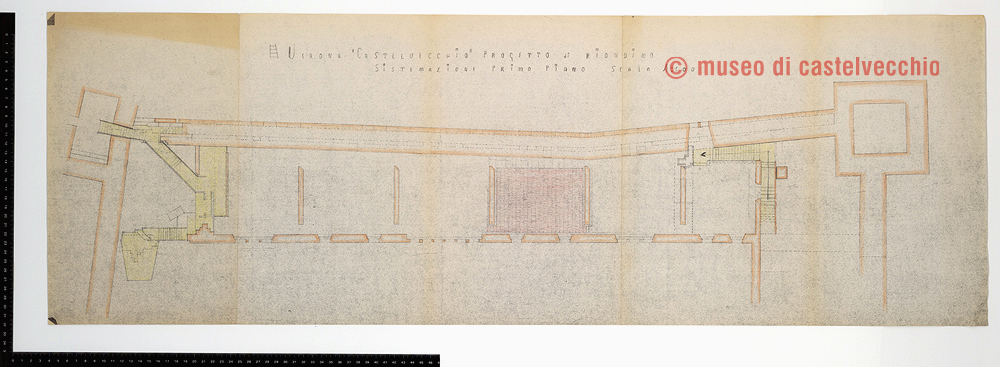 VERONA "CASTELVECCHIO" PROGETTO di RIORDINO
SISTEMAZIONE PRIMO PIANO SCALA
© museo di castelvecchio